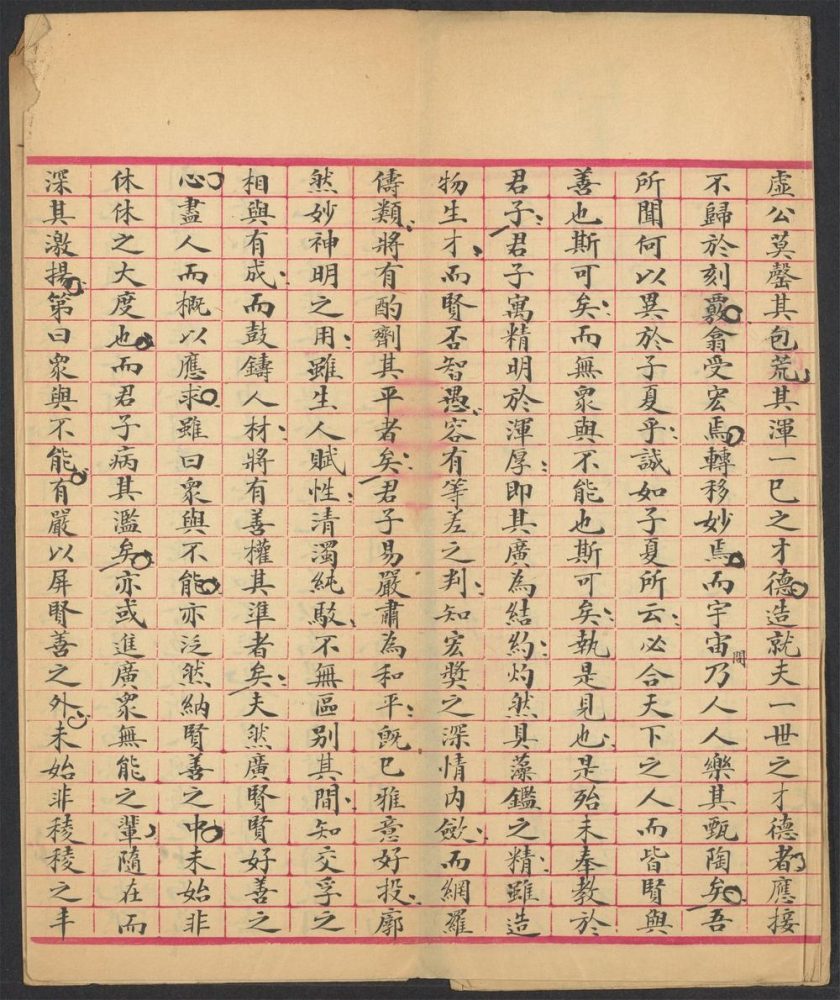 虛公莫罄其包荒其渾一己之才德造就夫一世之才德者應接
不歸於刻覈翕受宏焉轉移妙焉而宇宙間乃人人樂其甄陶矣吾
所聞何以異於子夏乎誠如子夏所云必合天下之人而皆賢與
善也斯可矣而無衆與不能也斯可矣執是見也是殆未奉教於
君子君子寓精明於渾厚即其廣為結約灼然具藻鑑之精雖造
物生才而賢否智愚容有等差之判知宏奬之深情内斂而網羅
儔類將有酌劑其平者矣君子易嚴肅為和平旣已雅意好投廓
然妙神明之用雖生人賦性清濁純駁不無區别其間知交孚之
相與有成而鼓鑄人材將有善權其準者矣夫然廣賢賢好善之
心盡人而概以應求雖曰衆與不能亦泛然納賢善之中未始非
休休之大度也而君子病其濫矣亦或進廣衆無能之輩隨在而
深其激揚第曰衆與不能有嚴以屏賢善之外未始非稜稜之丰